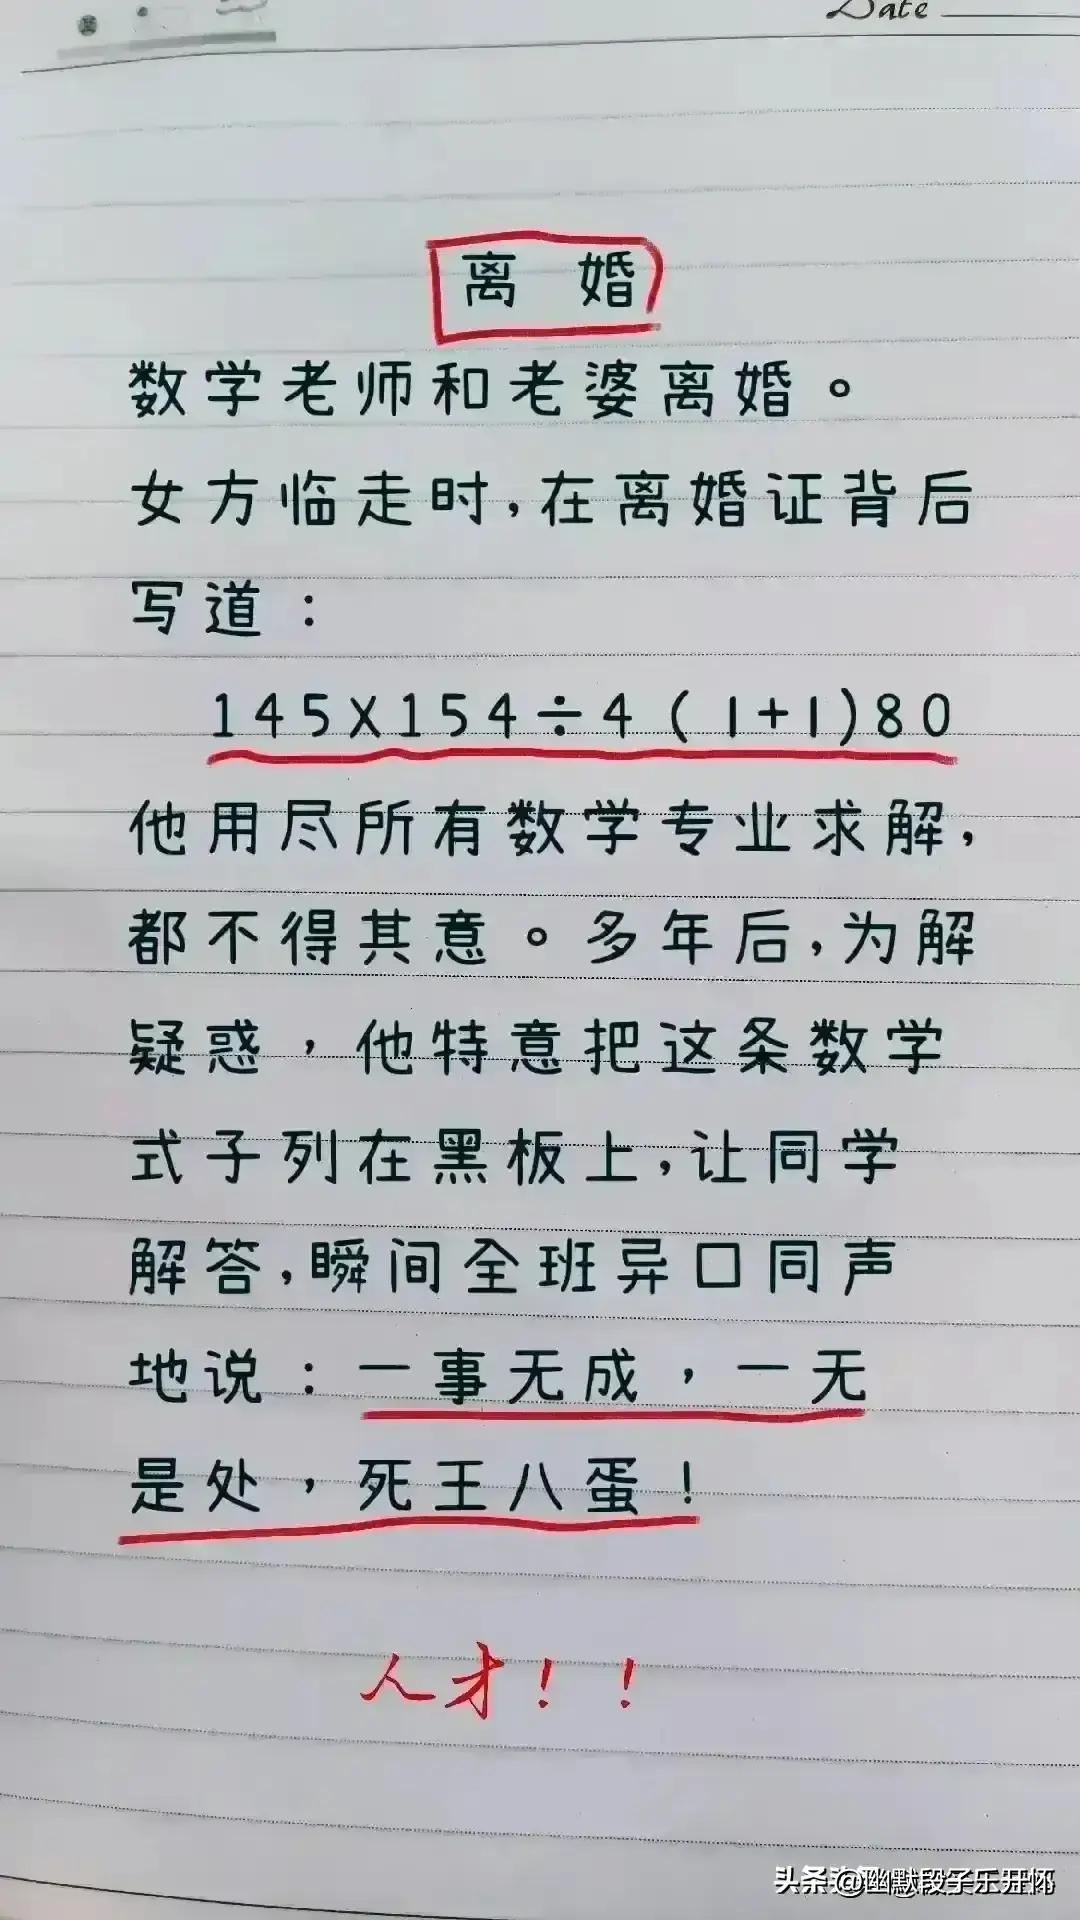 Date
离 婚
数学老师和老婆离婚。
女方临走时,在离婚证背后
写道:
145X154÷4(1+1)80
他用尽所有数学专业求解,
都不得其意。多年后,为解
疑惑,他特意把这条数学
式子列在黑板上,让同学
解答,瞬间全班异口同声
地说:一事无成,一无
是处,死王八蛋!
人才!!
头条 @幽默段子乐开怀